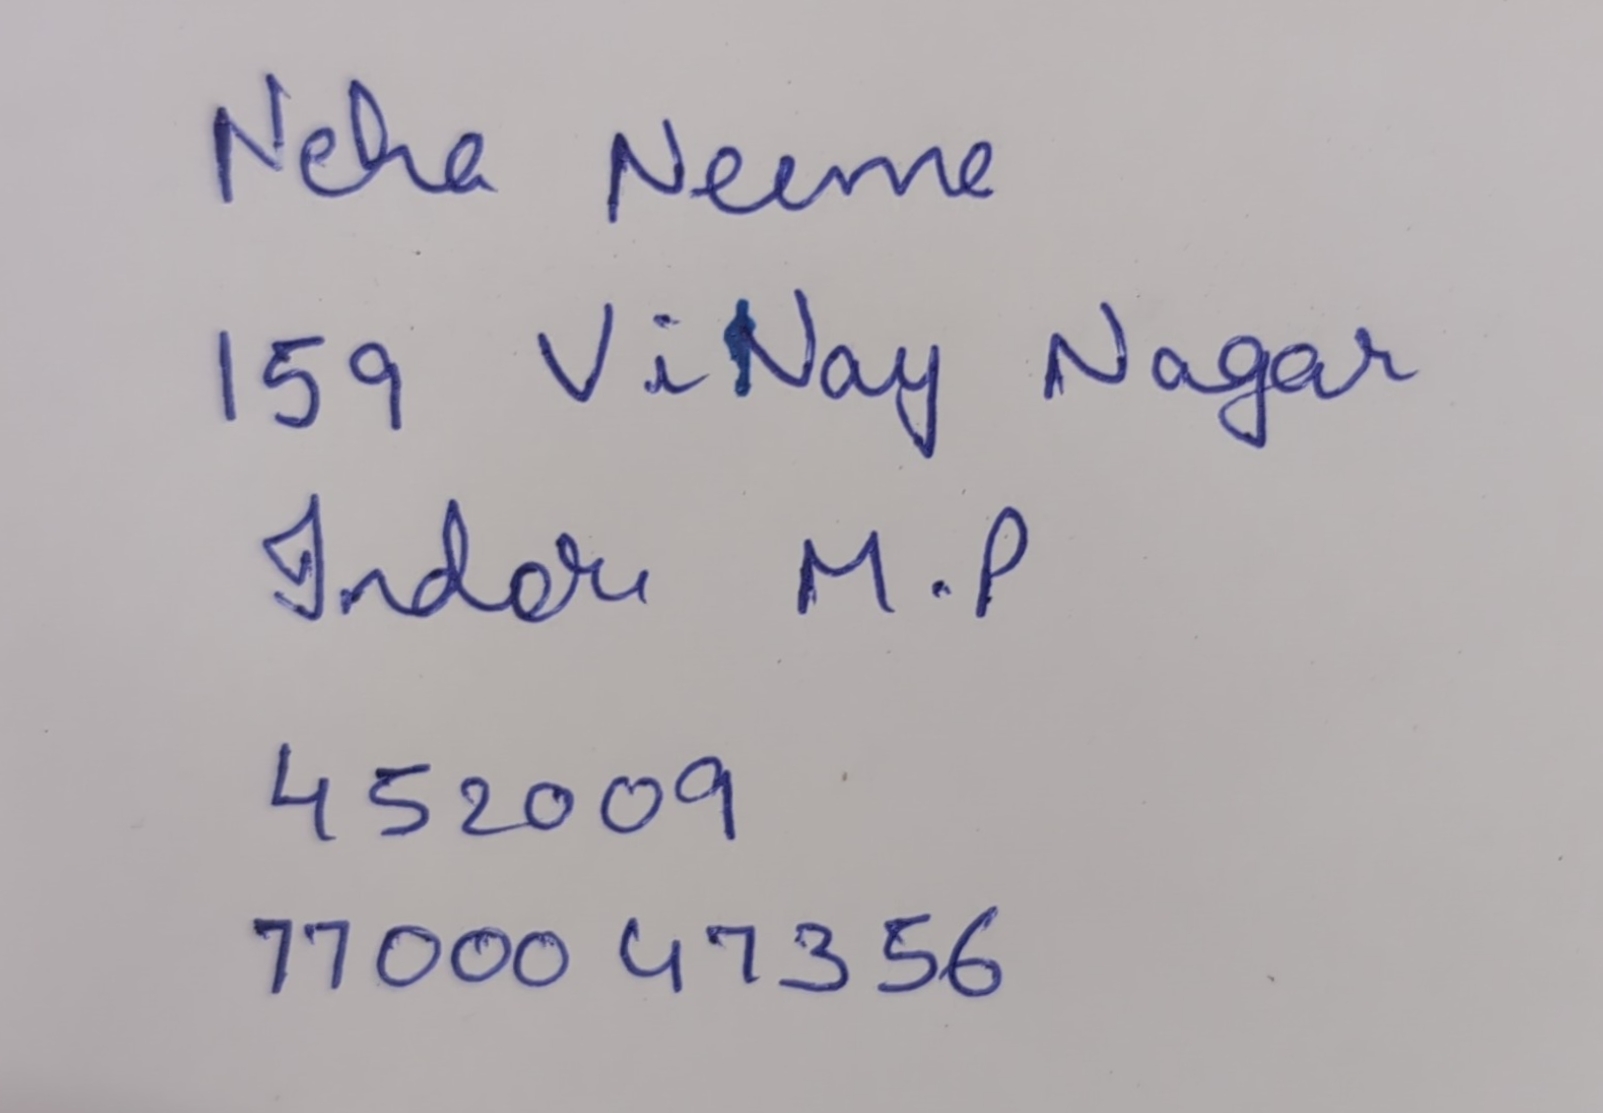 Neha Neema
159 ViNay Nagar
Indore M.P
452009
77000 47356